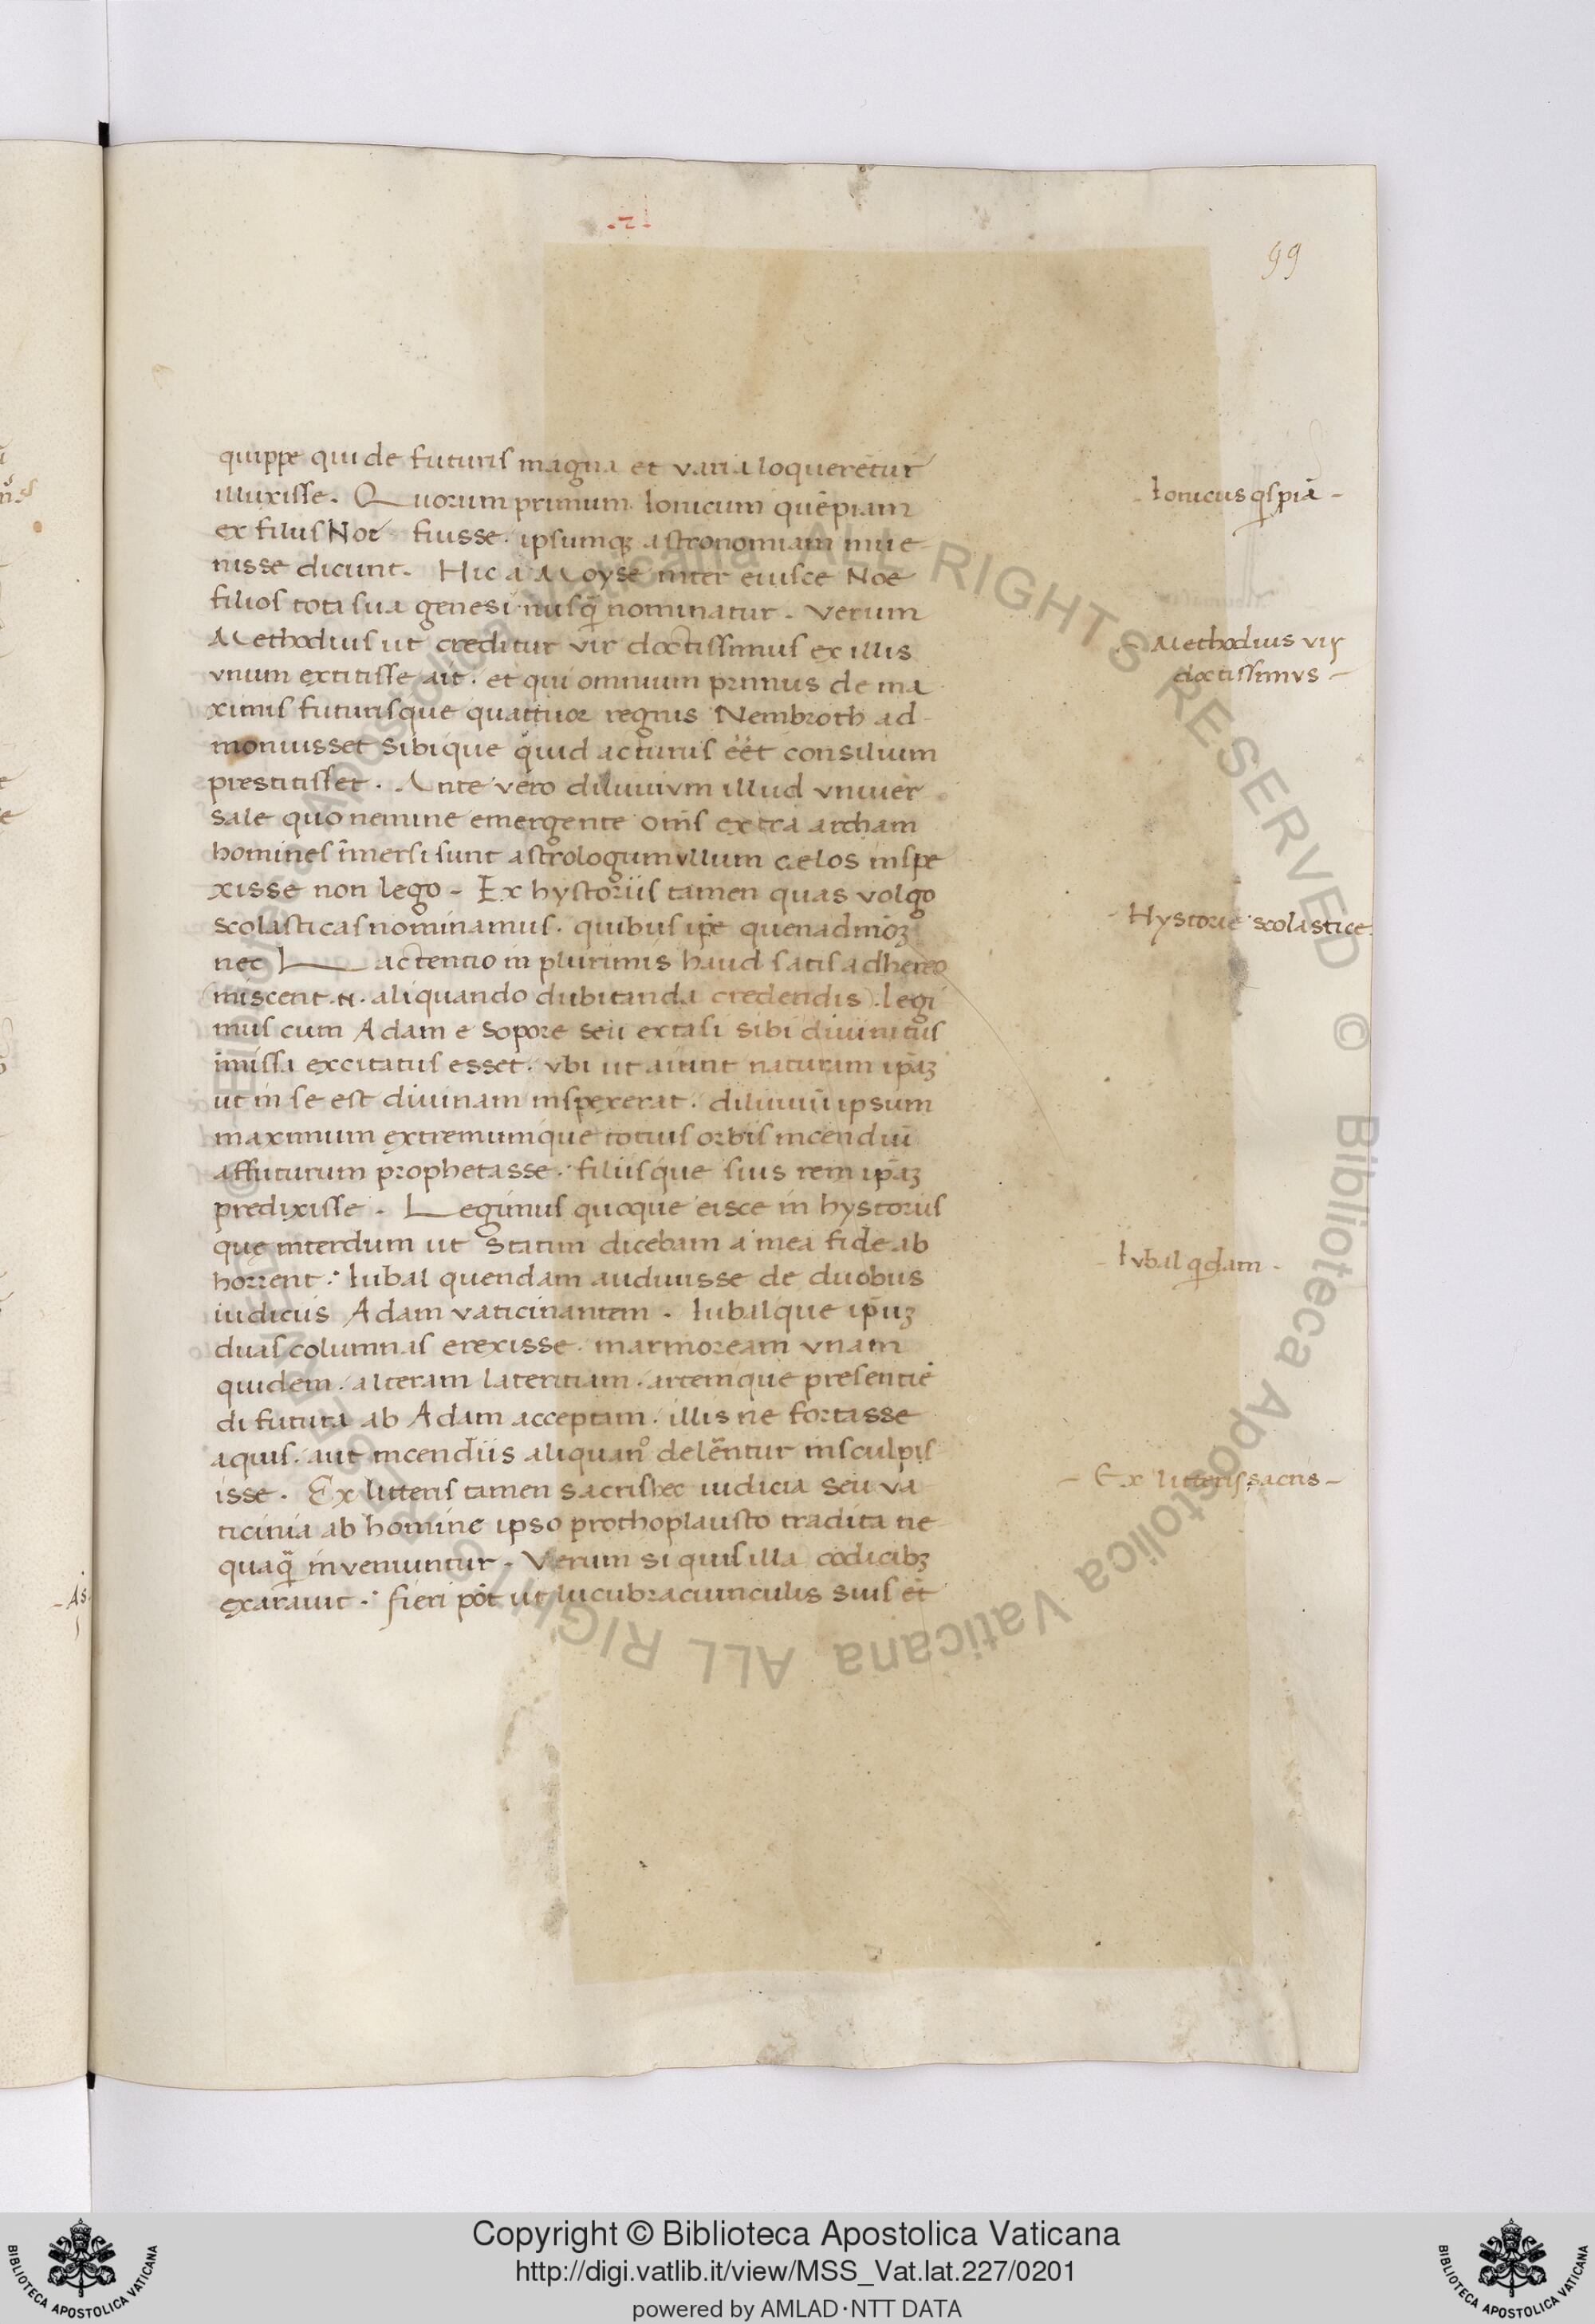 99
quippe qui de futuris magna et varia loquerētur
illuxisse. Quorum primum Ionicum quēpiam
ex filiis Noe fuisse. ipsumqꝫ astronomiam inue
nisse dicunt. Hic a Moyse inter eiusce Noe
filios tota sua genesi nusq̄ nominatur. Verum
Methodius ut creditur vir doctissimus ex illis
vnum extitisse ait. et qui omnium primus de ma
ximis futurisque quattuor regnis Nembroth ad
monuisset sibique quid acturus eēt consilium
prestitisset. Ante vero diluuivm illud vniuer
sale quo nemine emergente om̄s extra archam
homines īmersi sunt astrologum vllum cęlos inspe
xisse non lego. Ex hystoriis tamen quas volgo
scolasticas nominamus. quibus ip̄e quenadmōꝫ
nec Lactentio in plurimis haud satis adhereo
(miscent .N. aliquando dubitanda credendis). legi
mus cum Adam e sopore seu extasi sibi diuinitus
īmissa excitatus esset. vbi ut aiunt naturam ip̄aꝫ
ut in se est diuinam inspexerat. diluuiū ipsum
maximum extremumque totius orbis incendiū
affuturum prophetasse. filiisque suis rem ip̄aꝫ
predixisse. Legimus quoque eisce in hystoriis
quę interdum ut statim dicebam a mea fide ab
horrent. Iubal quendam audiuisse de duobus
iudiciis Adam vaticinantem. Iubalque ip̄uꝫ
duas columnas erexisse. marmoream vnam
quidem. alteram lateritiam. artemque presentie
di futura ab Adam acceptam. illis ne fortasse
aquis. aut incendiis aliquanº delērentur insculpis
isse. Ex litteris tamen sacris hec iudicia seu va
ticinia ab homine ipso prothoplausto tradita ne
quaq̄ inveniuntur. Verum si quis illa codicibꝫ
exarauit. fieri pōt ut lucubraciunculis suis et
Ionicus qspiā
Methodius vir
doctissimvs
Hystorie scolastice
Ivbal qdam
Ex litteris sacris
© Biblioteca Apostolica Vaticana ALL RIGHTS RESERVED
Copyright © Biblioteca Apostolica Vaticana
http://digi.vatlib.it/view/MSS_Vat.lat.227/0201
powered by AMLAD·NTT DATA
BIBLIOTECA APOSTOLICA VATICANA
BIBLIOTECA APOSTOLICA VATICANA